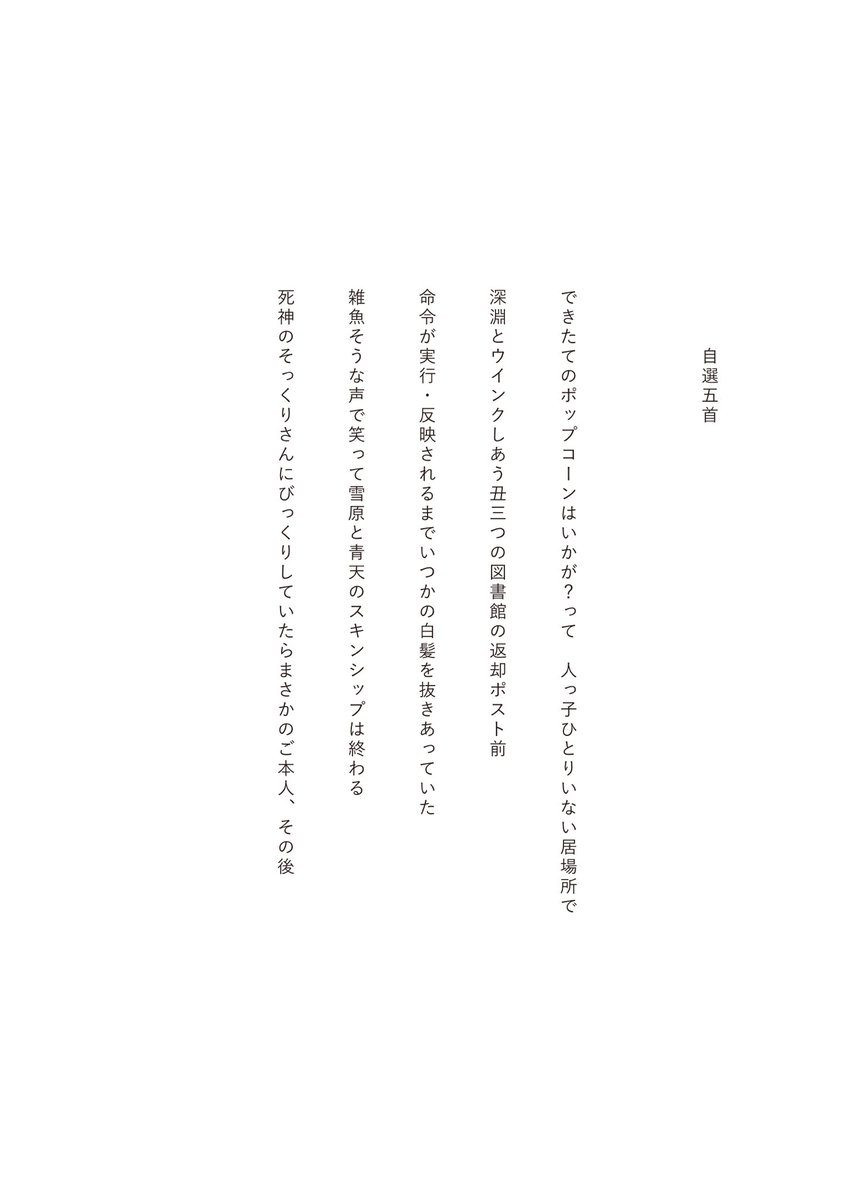 自選五首
できたてのポップコーンはいかが？って　人っ子ひとりいない居場所で
深淵とウインクしあう丑三つの図書館の返却ポスト前
命令が実行・反映されるまでいつかの白髪を抜きあっていた
雑魚そうな声で笑って雪原と青天のスキンシップは終わる
死神のそっくりさんにびっくりしていたらまさかのご本人、その後